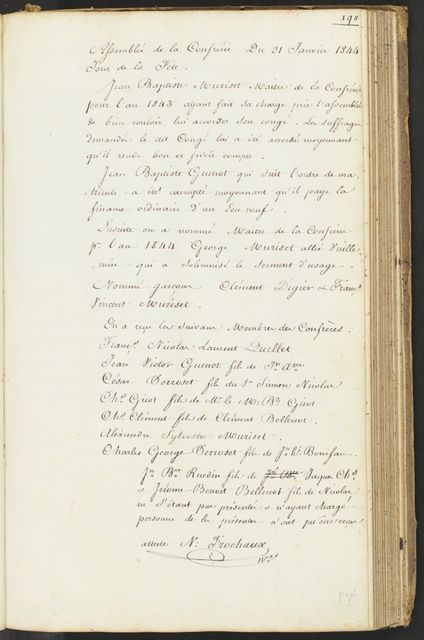 198
Assemblée de la Confrérie Du 21 Janvier 1844
Jour de la Fête.
Jean Baptiste Muriset Maitre de la Confrérie
pour l'an 1843 ayant fait sa charge prie l'assemblée
de bien vouloir lui accorder son congé. La suffrage
demandée le dit Congé lui a été accordé moyennant
qu'il rende bon et fidèle compte.
Jean Baptiste Guenot qui suit l'ordre de ma
tricule a été exempté moyennant qu'il paye la
finance ordinaire d'un Ecu neuf.
Ensuite on a nommé Maitre de la Confrérie
pr l'an 1844 George Muriset allié Vuille
min qui a solemnisé le serment d'usage.
Nommé garçons Clément Digier & Franç.
Vincent Muriset.
On a reçu les suivans Membres des Confrères:
Franç. Nicolas Laurent Quellet.
Jean Victor Guenot fils de Jn Ane
César Perroset fils du Sr Simon Nicolas
Chs Girot fils de Mr le M. Bd Girot
Chs Clément fils de Clément Bellenot.
Alexandre Sylvestre Muriset.
Charles George Perroset fils de Bonifau.
Jn Bte Ruedin fils de Jaques Chs
& Jérome Benoit Bellenot fils de Nicolas
ne s'étant pas présentés & n'ayant chargé
personne de les présenter n'ont pu être reçus
atteste N: Frochaux
Nre
payé